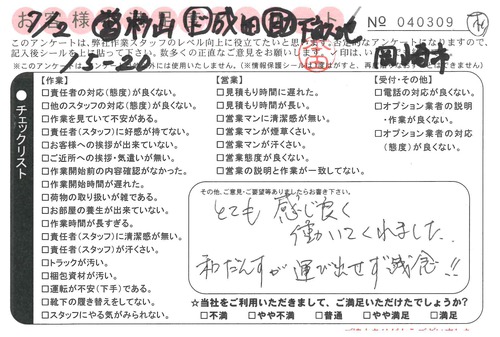 お客様
7/2
No 040309
15-20
このアンケートは、弊社作業スタッフのレベル向上に役立てたいと
記入後シールを上に貼って
※このアンケート
【作業】
□責任者の対応(態度)が良くない。
□他のスタッフの対応(態度)が良くない。
□作業を見ていて不安がある。
□責任者(スタッフ)に好感が持てない。
□お客様への挨拶が出来ていない。
□ご近所への挨拶・気遣いが無い。
□作業開始前の内容確認がなかった。
□作業開始時間が遅れた。
□荷物の取り扱いが雑である。
□お部屋の養生が出来ていない。
□作業時間が長すぎる。
□責任者(スタッフ)に清潔感が無い。
□責任者(スタッフ)が汗くさい。
□トラックが汚い。
□梱包資材が汚い。
□運転が不安(下手)である。
□靴下の履き替えをしてない。
□スタッフにやる気がみられない。
【営業】
□見積もり時間に遅れた。
□見積もり時間が長い。
□営業マンに清潔感が無い。
□営業マンが煙草くさい。
□営業マンが汗くさい。
□営業態度が良くない。
□営業の説明と作業が一致してない。
【受付・その他】
□電話の対応が良くない。
□オプション業者の説明
・作業が良くない。
□オプション業者の対応
(態度)が良くない。
●チェックリスト
その他、ご意見・ご要望等ありましたらお書き下さい。
とても 感じ良く
働いてくれました。
和だんすが 運び出せず残念!!
☆当社をご利用いただきまして、ご満足いただけたでしょうか?
□不満 □やや不満 □普通 □やや満足 □満足